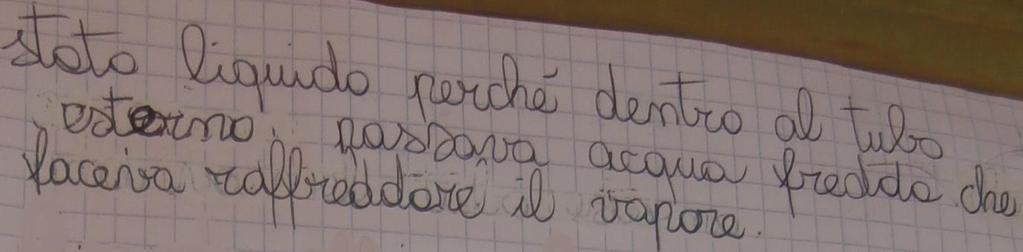 stato liquido perché dentro al tubo
esterno passava acqua fredda che
faceva raffreddare il vapore.